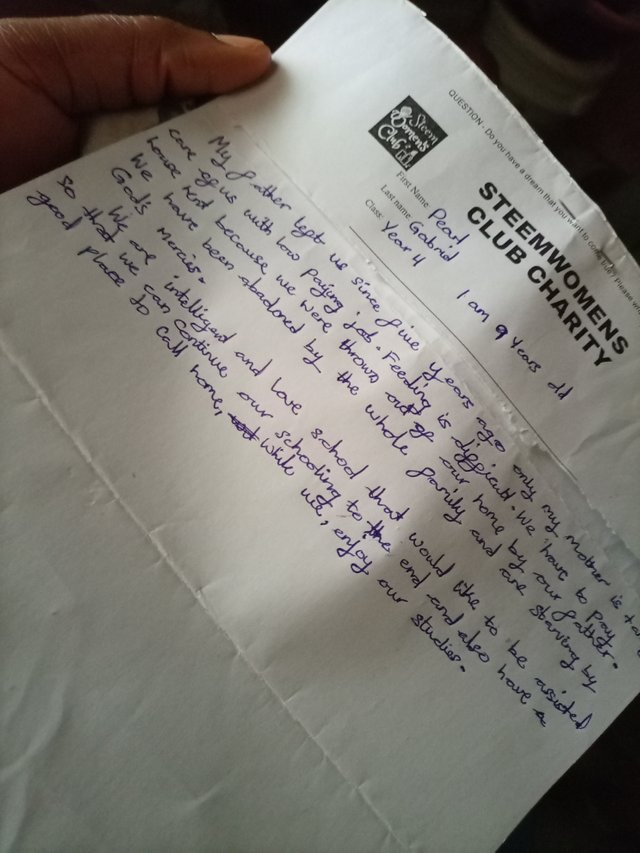 QUESTION - Do you have a dream that you want to come true? Please
STEEMWOMENS
CLUB CHARITY
Steem
Women's
Club
First Name Pearl
Last name Gabriel
Class: Year 4
I am 9 Years old
My father left us since five years ago only my mother is
care of us with low paying job. Feeding is difficult. We have to pay
house rent because we were thrown out of our home by our father.
We have been abadoned by the whole family and are starving by
God's Mercies.
We are intelligent and love school that would like to be assisted
so that we can continue our schooling to the end and also have a
good place to call home, while we, enjoy our studies.